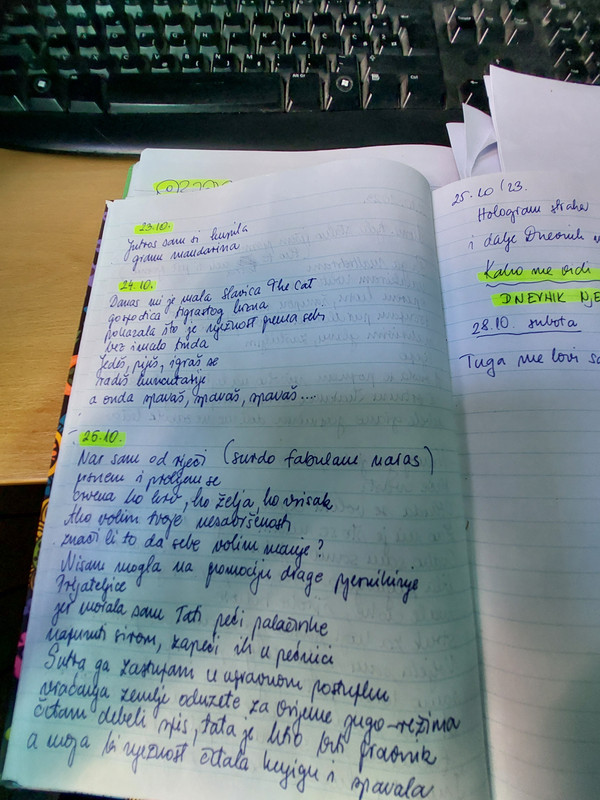 23.10.
Jutros sam si kupila
granu mandarina
24.10.
Danas mi je mala Slavica The Cat
gospodica tigrastog krzna
pokazala što je nježnost prema sebi
bez imalo truda
Jedeš, piješ, igraš se
radiš
a onda spavaš, spavaš, spavaš....
26.10.
Nar sam od riječi (surdo fabulam narras)
pucnem i prolijem se
crvena ko krv, ko želja, ko vrisak
Ako volim tvoje nesavršenosti
znači li to da sebe volim manje?
Nisam mogla na promociju drage pjesnikinje
Prijateljice
jer morala sam Tati peći palačinke
napuniti sirom, zapeći ih u pećnici
Sutra ga zastupam u upravnom postupku
vraćanja zemlje oduzete za vrijeme jugo-režima
čitam debeli spis, tata je htio biti pravnik
a moja bi nježnost čitala knjigu i spavala
25.10.'23.
Hologram straha
i dalje Dnevnik
Kako me vidi
DNEVNIK NJE
28.10. subota
Tuga me lovi